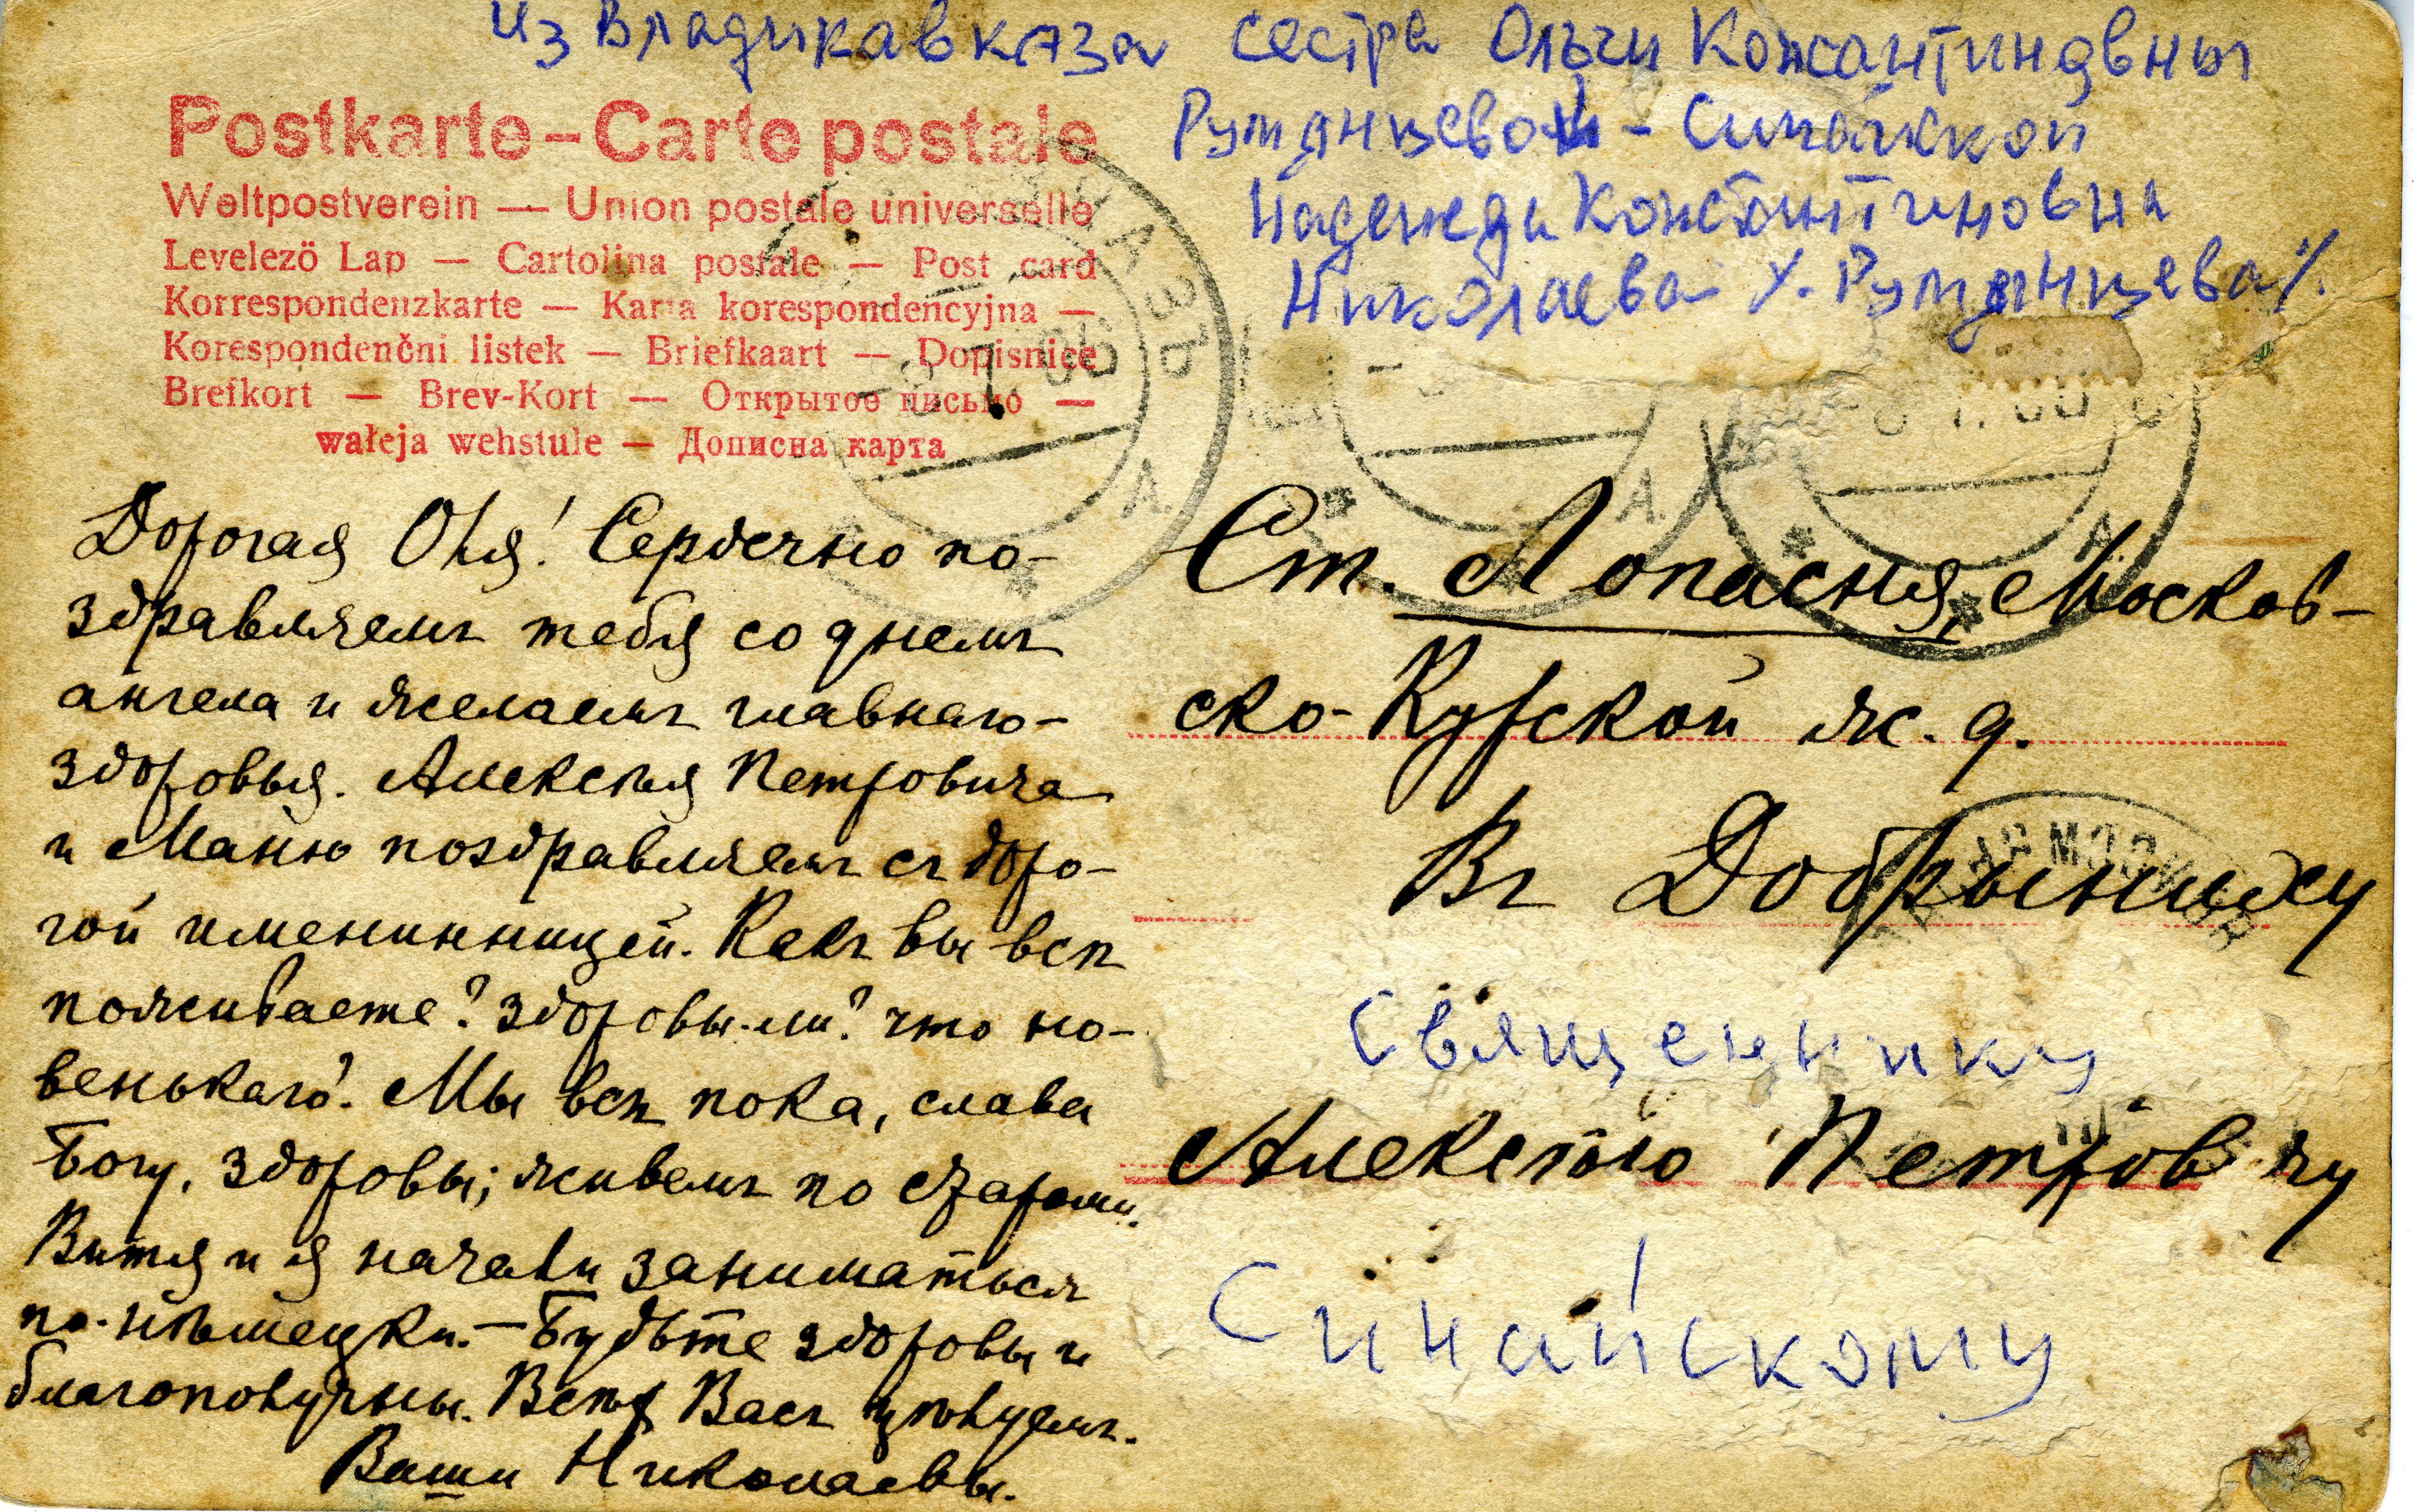 из Владикавказа сестра Ольги Константиновны
Румянцевой - Синайской
Надежда Константиновна
Николаева /у. Румянцева/.
Postkarte – Carte postale
Weltpostverein — Union postale universelle
Levelező Lap — Cartolina postale — Post card
Korrespondenzkarte — Karta korespondencyjna —
Korespondenční listek — Briefkaart — Dopisnice
Brefkort — Brev-Kort — Открытое письмо —
wałeja wehstule — Дописна карта
Дорогая Оля! Сердечно по-
здравляемъ тебя со днемъ
ангела и желаемъ главнаго-
здоровья. Алексѣя Петровича
и Маню поздравляемъ съ доро-
гой именинницей. Какъ вы всѣ
поживаете? здоровы-ли? что но-
венькаго? Мы всѣ пока, слава
Богу, здоровы; живемъ по старому.
Витя и я начали заниматься
по-нѣмецки. — Будьте здоровы и
благополучны. Всѣхъ Васъ цѣлуемъ.
Ваши Николаевы.
Ст. Лопасня, Москов-
ско-Курской ж. д.
Въ Добрыниху
Священнику
Алексѣю Петровичу
Синайскому